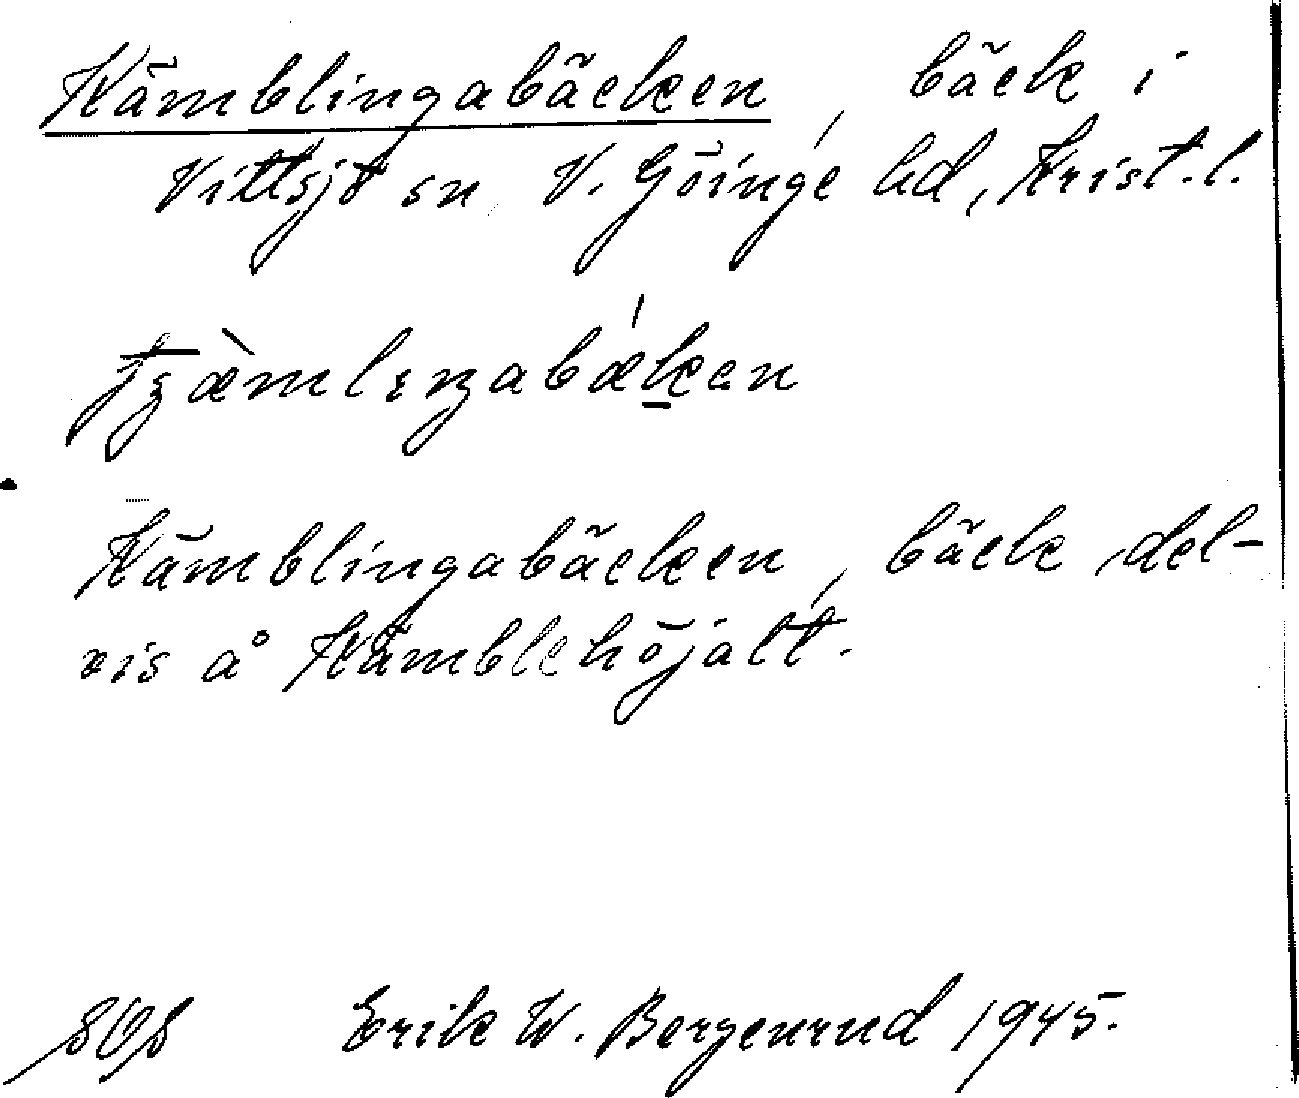 Kämblingabäcken, bäck i
Vittsjö sn, V. Göinge hd, Krist. l.
Kämblingabäcken, bäck del-
vis å Kämblehöjalt.
Erik W. Bergenrud 1945.